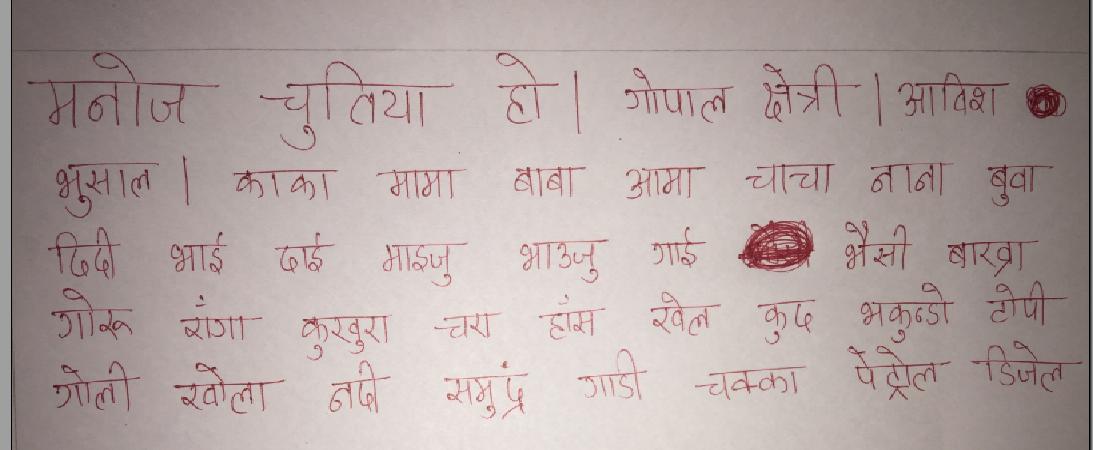 मनोज चुतिया हो। गोपाल क्षेत्री। आविश
भुसाल। काका मामा बाबा आमा चाचा नाना बुवा
दिदी भाई दाई माइजु भाउजु गाई भैसी बाख्रा
गोरू राँगा कुखुरा चरा हाँस खेल कुद भकुन्डो टोपी
गोली खोला नदी समुद्रं गाडी चक्का पेट्रोल डिजेल